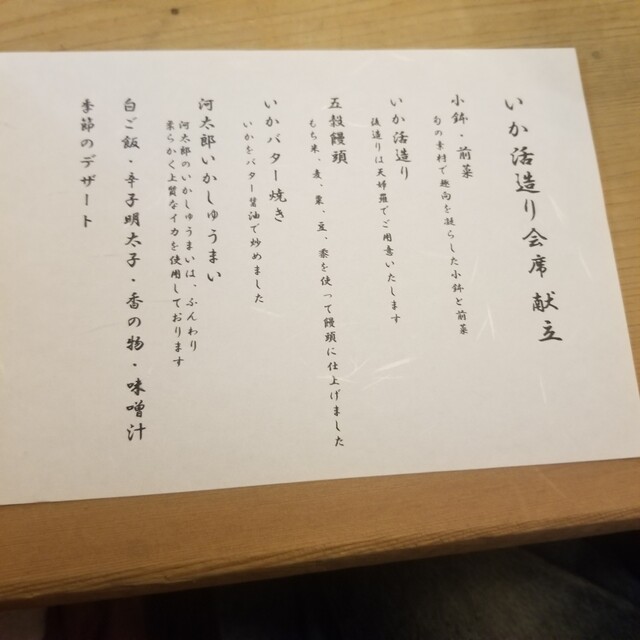 いか活造り会席 献立
小鉢・前菜
旬の素材で趣向を凝らした小鉢と前菜
いか活造り
後造りは天婦羅でご用意いたします
五穀饅頭
もち米、麦、粟、豆、黍を使って饅頭に仕上げました
いかバター焼き
いかをバター醤油で炒めました
河太郎いかしゅうまい
河太郎のいかしゅうまいは、ふんわり
柔らかく上質なイカを使用しております
白ご飯・辛子明太子・香の物・味噌汁
季節のデザート